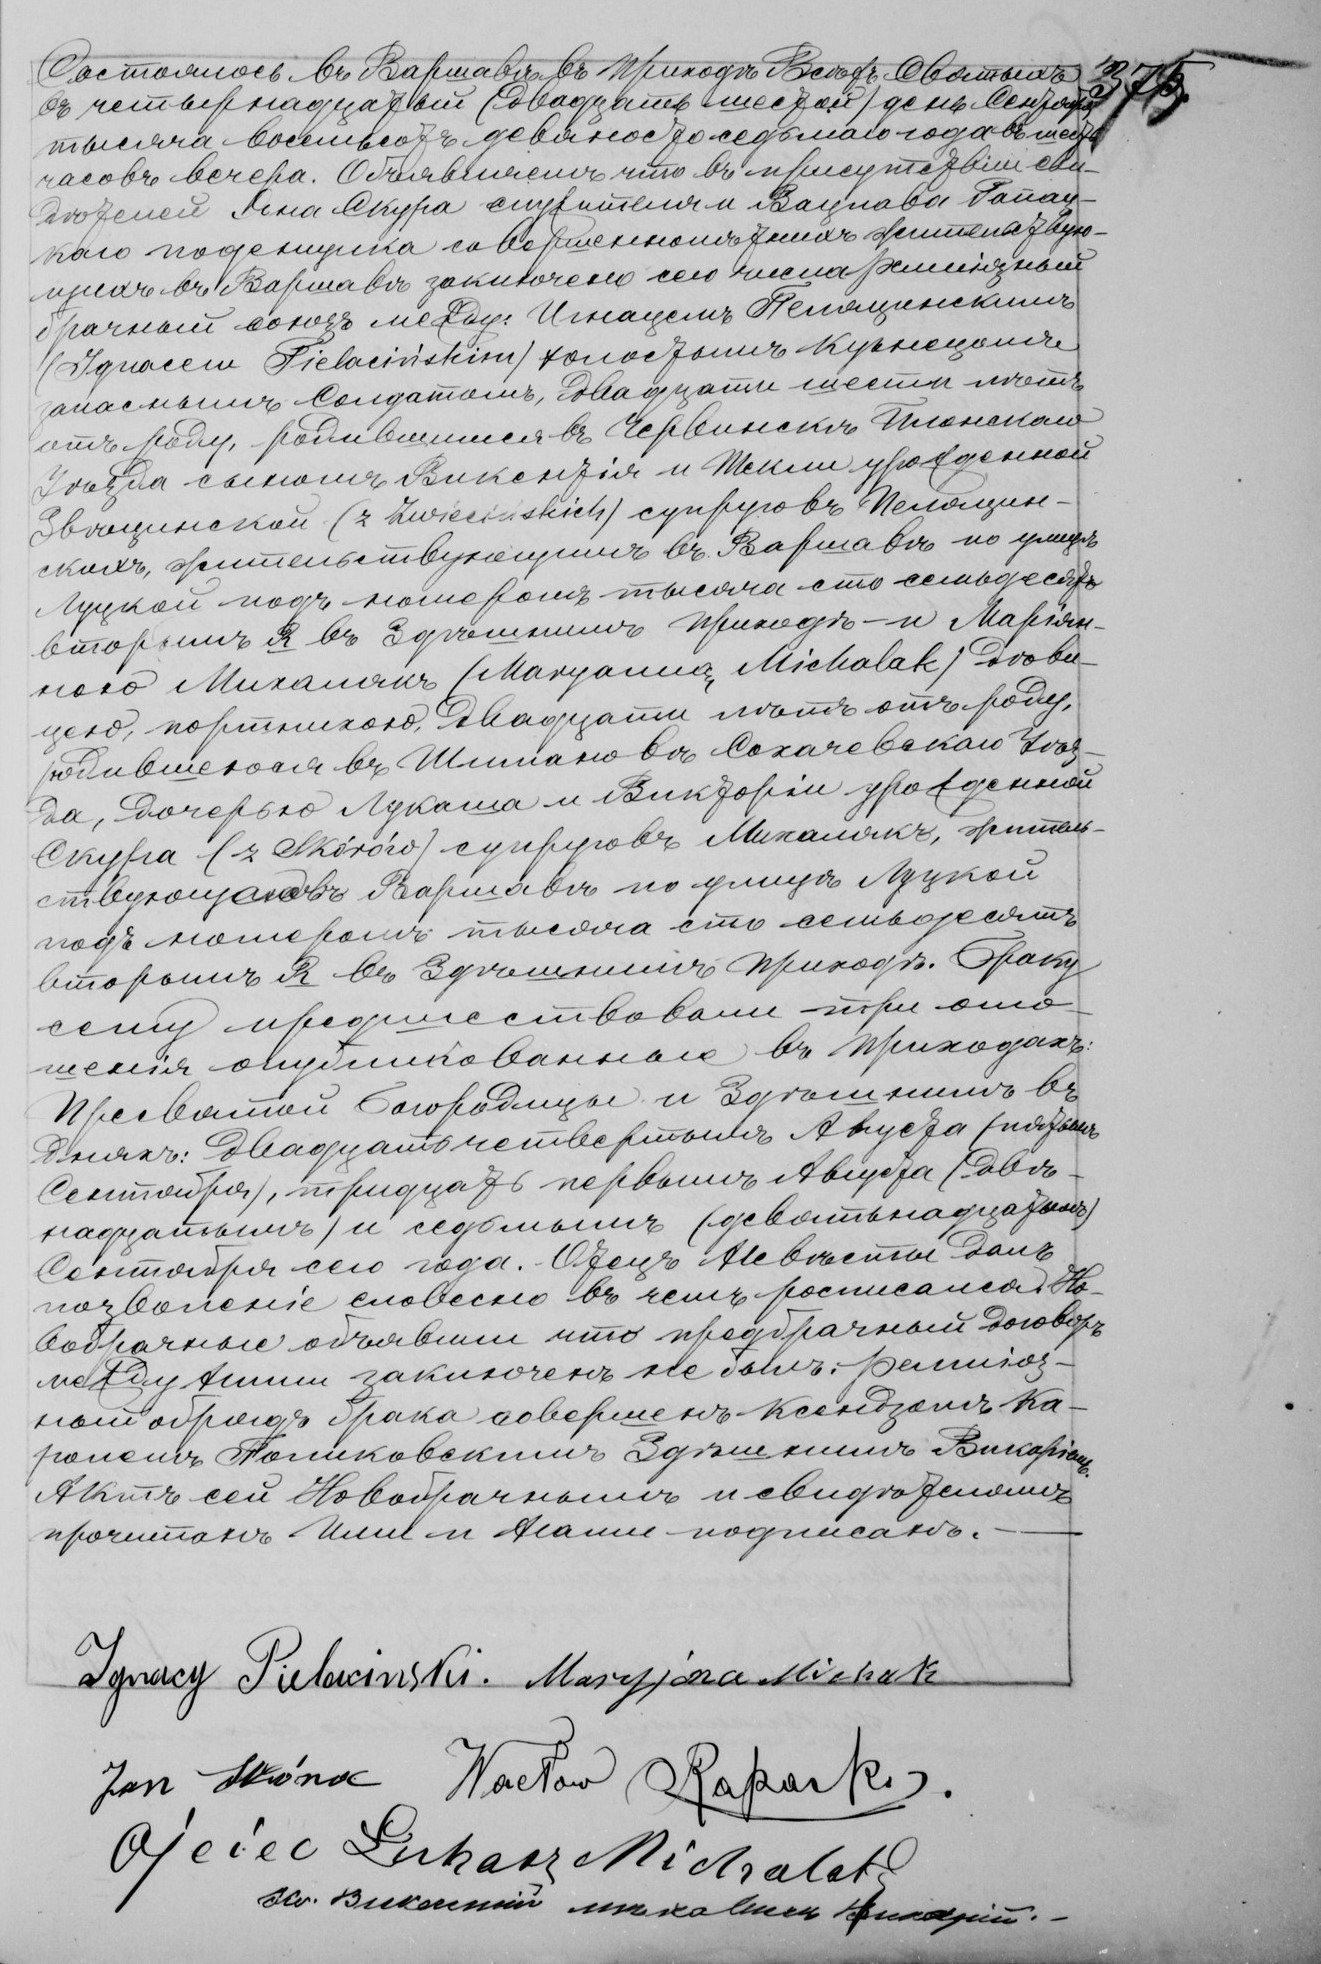 375.
Состоялось въ Варшавѣ въ приходѣ Всѣхъ Святыхъ
въ четырнадцатый (двадцать шестой) день Сентября
тысяча восемьсотъ девяносто седьмаго года въ шесть
часовъ вечера. Объявляемъ что въ присутствіи сви-
дѣтелей Яна Скура служителя и Вацлава
каго поденщика совершеннолѣтнихъ жительствую-
щихъ въ Варшавѣ заключено сего числа религіозный
брачный союзъ между: Игнацемъ Пелацинскимъ
(Ignacem Pielacińskim) холостымъ кузнецомъ
запаснымъ Солдатомъ, двадцати шести лѣтъ
отъ роду, родившимся въ Червинскѣ Плонскаго
Уѣзда сыномъ Викентія и Теклы урожденной
Звѣцинской (z Zwiecińskich) супруговъ Пелацин-
скихъ, жительствующимъ въ Варшавѣ по улицѣ
Луцкой подъ номеромъ тысяча сто семьдесятъ
вторымъ R въ Здѣшнимъ приходѣ — и Маріан-
ною Михалякъ (Maryanną Michalak) дѣви-
цею, портнихою, двадцати лѣтъ отъ роду,
родившеюся въ Шимановѣ Сохачевскаго Уѣз-
да, дочерью Лукаша и Викторіи урожденной
Скура (z Skórów) супруговъ Михалякъ, житель-
ствующею въ Варшавѣ по улицѣ Луцкой
подъ номеромъ тысяча сто семьдесятъ
вторымъ R въ Здѣшнимъ приходѣ. Браку
сему предшествовали три огла-
шенія опубликованныя въ приходахъ:
Пресвятой Богородицы и Здѣшнимъ въ
дняхъ: двадцать четвертымъ Августа (пятымъ
Сентября), тридцать первымъ Августа (двѣ-
надцатымъ) и седьмымъ (девятьнадцатымъ)
Сентября сего года. Отецъ Невѣсты далъ
позволеніе словесно въ чемъ росписался. Но-
вобрачные объявили что предбрачный договоръ
между ними заключенъ не былъ. Религіоз-
ный обрядъ брака совершенъ Ксендзомъ Ка-
ролемъ Здѣшнимъ Викаріемъ.
Актъ сей Новобрачнымъ и свидѣтелямъ
прочитанъ Ими и Нами подписанъ. —
Ignacy Pielacinski. Maryjana Michalk
Jan Skóra Wacław
Ojciec Łukasz Michalak
Кс. Викентій Викарій. —